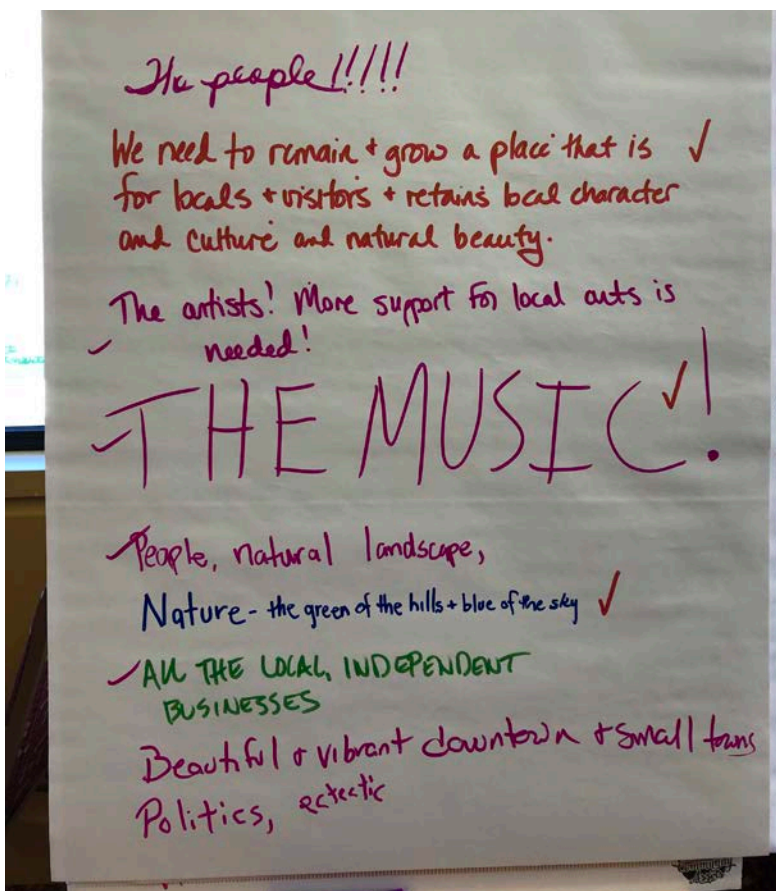 The people!!!!!
We need to remain + grow a place that is ✓
for locals + visitors + retains local character
and culture and natural beauty.
The artists! More support for local arts is
✓ needed!
✓ THE MUSIC ✓!
✓ People, natural landscape,
Nature - the green of the hills + blue of the sky ✓
✓ All THE LOCAL, INDEPENDENT
BUSINESSES
Beautiful + vibrant downtown + small towns
Politics, eclectic